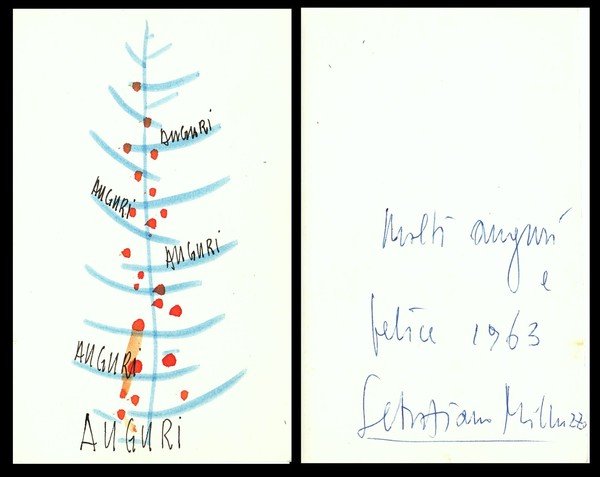 AUGURI
AUGURI
AUGURI
AUGURI
AUGURI
Molti auguri
e
felice 1963
Sebastiano Milluzzo